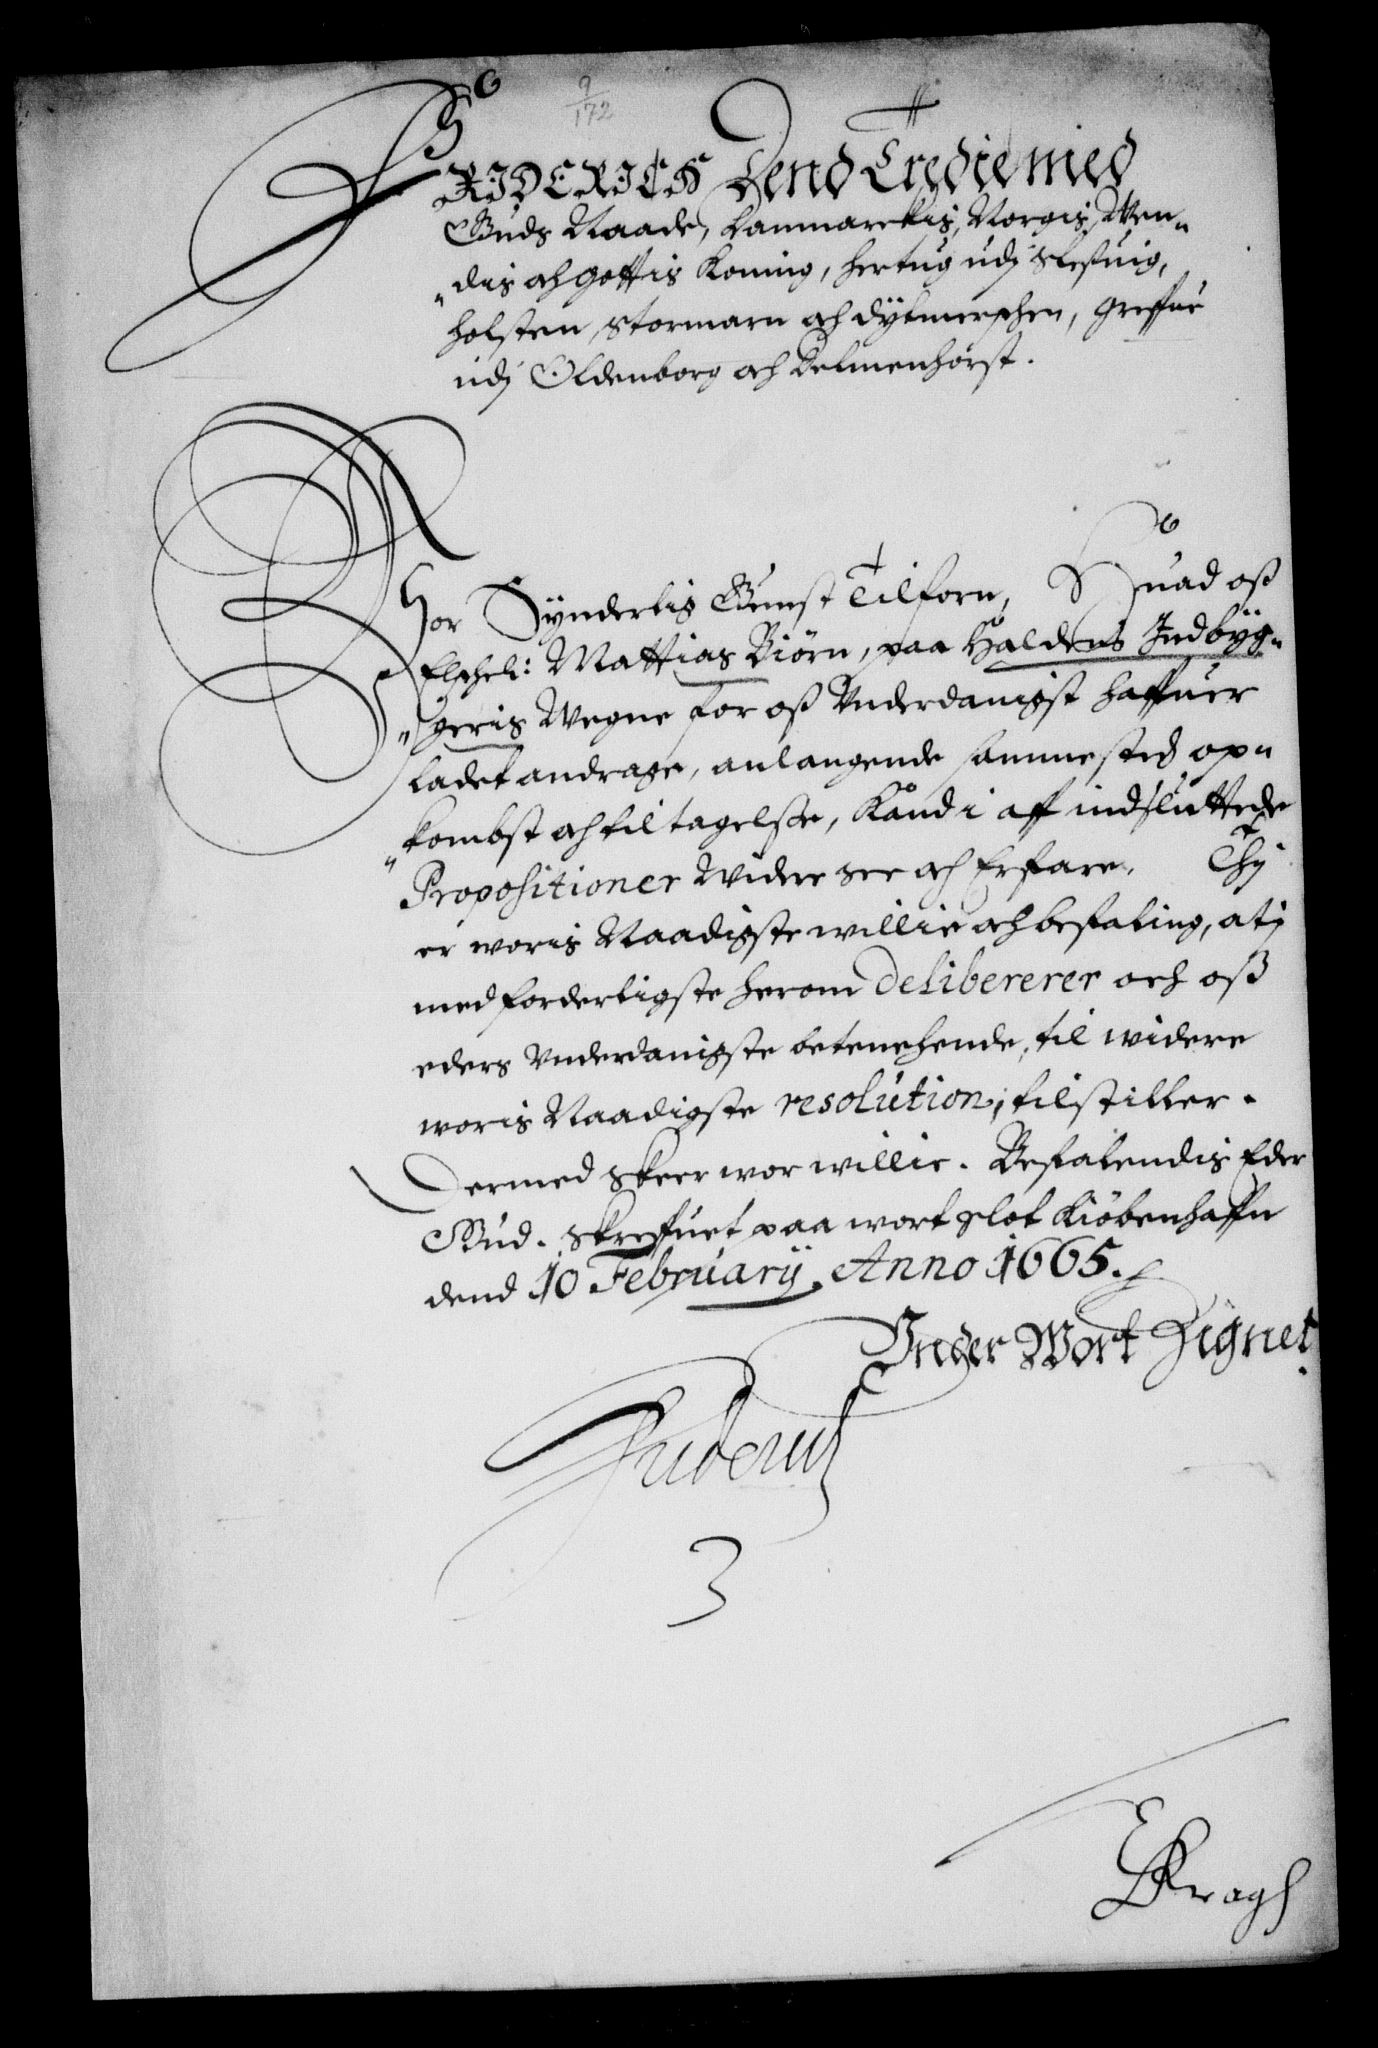 9
172
FRIDERICH Dend Tredie med
Guds Naade, Danmarckis, Norgis, Wen-
"dis och Gottis Koning, hertug udj Slesuig,
holsten, Stormarn och Dytmerschen, Greffue
udj Oldenborg och Delmenhorst.
Vor Synderlig Gunst Tilforn, Huad oß
Elschel: Mattias Biörn, paa Haldens Indbyg-
"geris Wegne for oß Vnderdanigst haffuer
ladet andrage, anlangende sammesteds op-
"kombst och tiltagelse, Kand i aff indsluttede
Propositioner widere see och Erfare. Thj
er woris Naadigste willie och befaling, at i
med forderligste herom delibererer och oß
eders Vnderdanigste betenchende, til widere
woris Naadigste resolution, tilstiller.
Dermed skeer wor willie. Befalendis Eder
Gud. Skreffuet paa wort Slot Kiöbenhaffn
dend 10 February. Anno 1665.
Under Wort Zignet.
Friderich
3
E Kragh